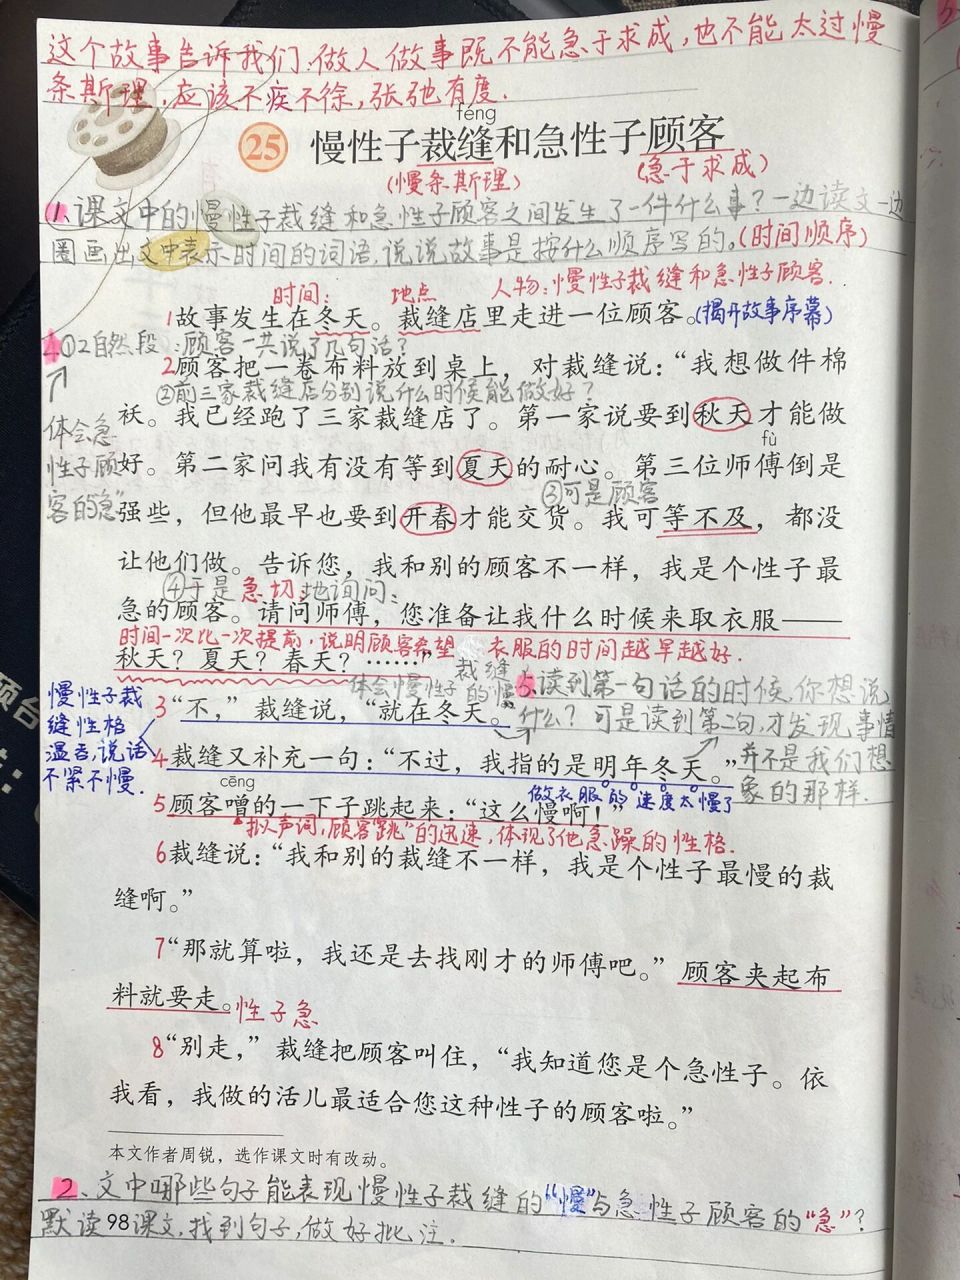 这个故事告诉我们,做人做事既不能急于求成,也不能太过慢
条斯理,应该不疾不徐,张弛有度.
féng
25 慢性子裁缝和急性子顾客
(慢条斯理) (急于求成)
1、课文中的慢性子裁缝和急性子顾客之间发生了一件什么事?一边读文一边
圈画出文中表示时间的词语,说说故事是按什么顺序写的。(时间顺序)
时间: 地点 人物:慢性子裁缝和急性子顾客.
1故事发生在冬天。裁缝店里走进一位顾客。(揭开故事序幕)
4①2自然段:顾客一共说了几句话?
2顾客把一卷布料放到桌上，对裁缝说：“我想做件棉
②前三家裁缝店分别说什么时候能做好?
袄。我已经跑了三家裁缝店了。第一家说要到秋天才能做
体会急
性子顾
客的“急”
fù
好。第二家问我有没有等到夏天的耐心。第三位师傅倒是
③可是顾客
强些，但他最早也要到开春才能交货。我可等不及，都没
让他们做。告诉您，我和别的顾客不一样，我是个性子最
④于是急切地询问:
急的顾客。请问师傅，您准备让我什么时候来取衣服——
时间一次比一次提前,说明顾客希望 衣服的时间越早越好.
秋天？夏天？春天？……”
体会慢性子裁缝的“慢”
5.读到第一句话的时候,你想说
什么? 可是读到第二句,才发现事情
并不是我们想
象的那样.
慢性子裁
缝性格
温吞,说话
不紧不慢.
3“不，”裁缝说，“就在冬天。”
4裁缝又补充一句：“不过，我指的是明年冬天。”
cēng
做衣服的速度太慢了
5顾客噌的一下子跳起来：“这么慢啊！”
拟声词,顾客“跳”的迅速,体现了他急躁的性格.
6裁缝说：“我和别的裁缝不一样，我是个性子最慢的裁
缝啊。”
7“那就算啦，我还是去找刚才的师傅吧。”顾客夹起布
料就要走。性子急
8“别走，”裁缝把顾客叫住，“我知道您是个急性子。依
我看，我做的活儿最适合您这种性子的顾客啦。”
本文作者周锐，选作课文时有改动。
2、文中哪些句子能表现慢性子裁缝的“慢”与急性子顾客的“急”?
默读课文,找到句子,做好批注.
98